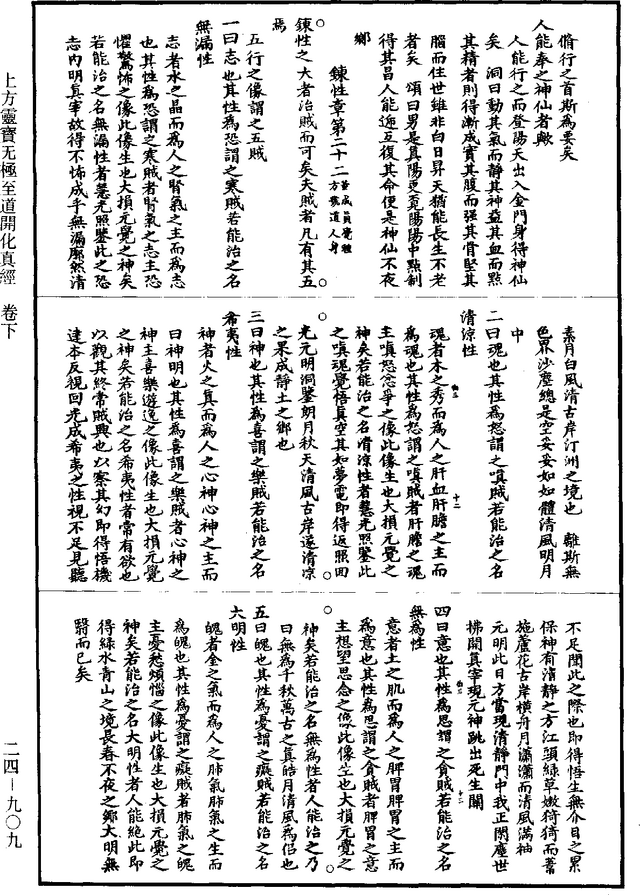 脩行之首斯為要矣
人能奉之神仙者歟
人能行之而登陽天出入金門身得神仙
矣　洞曰動其氣而靜其神益其血而點
其精者則得漸成實其腹而強其骨堅其
腦而住世雖非白日昇天猶能長生不老
者矣　頌曰男是真陽更莫陽陽中點制
得其昌人能迤互復其命便是神仙不夜
鄉
鍊性章第二十二
鍊性之大者治賊而可矣夫賊者凡有其五
焉
五行之像謂之五賊
一曰志也其性為恐謂之寒賊若能治之名
無漏性
志者水之晶而為人之腎氣之主而為志
也其性為恐謂之寒賊者腎氣之志主恐
懼驚怖之像此像生也大損元覺之神矣
若能治之名無漏性者慧光照鑒此之恐
志內明真宰故得不怖成乎無漏廓然清
素月白風清古岸汀洲之境也　離斯無
色界沙塵總是空妄妄如如體清風明月
中
二曰魂也其性為怒謂之嗔賊若能治之名
清涼性
魂者木之秀而為人之肝血肝膽之主而
為魂也其性為怒謂之嗔賊者肝膽之魂
主嗔怒忿爭之像此像生也大損元覺之
神矣若能治之名清涼性者慧光照鑒此
之嗔魂覺悟真空其如夢電即得返照回
光元明洞鑒朗月秋天清風古岸遂清涼
之果成靜土之鄉也
三曰神也其性為喜謂之樂賊若能治之名
希夷性
神者火之真而為人之心神心神之主而
曰神明也其性為喜謂之樂賊者心神之
神主喜樂遊逸之像此像生也大損元覺
之神矣若能治之名希夷性者常有欲也
以觀其終常賊興也以察其幻即得悟機
達本反視回光成希夷之性視不足見聽
不足聞此之際也即得悟生無介目之累
保神有清靜之方江頭綠草嫩猗猗而蓼
施蘆花古岸橫舟月瀟瀟而清風滿袖
元明此日方當現清靜門中我正閑塵世
拂開真宰現元神跳出死生關
四曰意也其性為思謂之貪賊若能治之名
無為性
意者土之肌而為人之脾胃脾胃之主而
為意也其性為思謂之貪賊者脾胃之意
主想望思念之像此像生也大損元覺之
神矣若能治之名無為性者人能治之乃
曰無為千秋萬古之真皓月清風為侶也
五曰魄也其性為憂謂之癡賊若能治之名
大明性
魄者金之氣而為人之肺氣肺氣之生而
為魄也其性為憂謂之癡賊者肺氣之魄
主憂愁煩惱之像此像生也大損元覺之
神矣若能治之名大明性者人能絕此即
得綠水青山之境長春不夜之鄉大明無
翳而已矣
上方靈寶无極至道開化真經　卷下
二四－九〇九